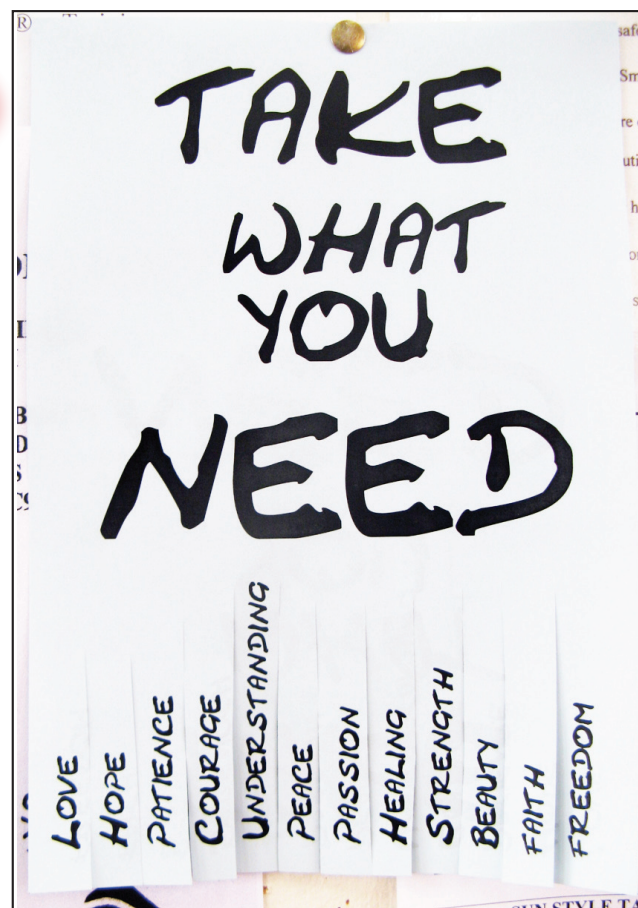 TAKE
WHAT
YOU
NEED
LOVE
HOPE
PATIENCE
COURAGE
UNDERSTANDING
PEACE
PASSION
HEALING
STRENGTH
BEAUTY
FAITH
FREEDOM